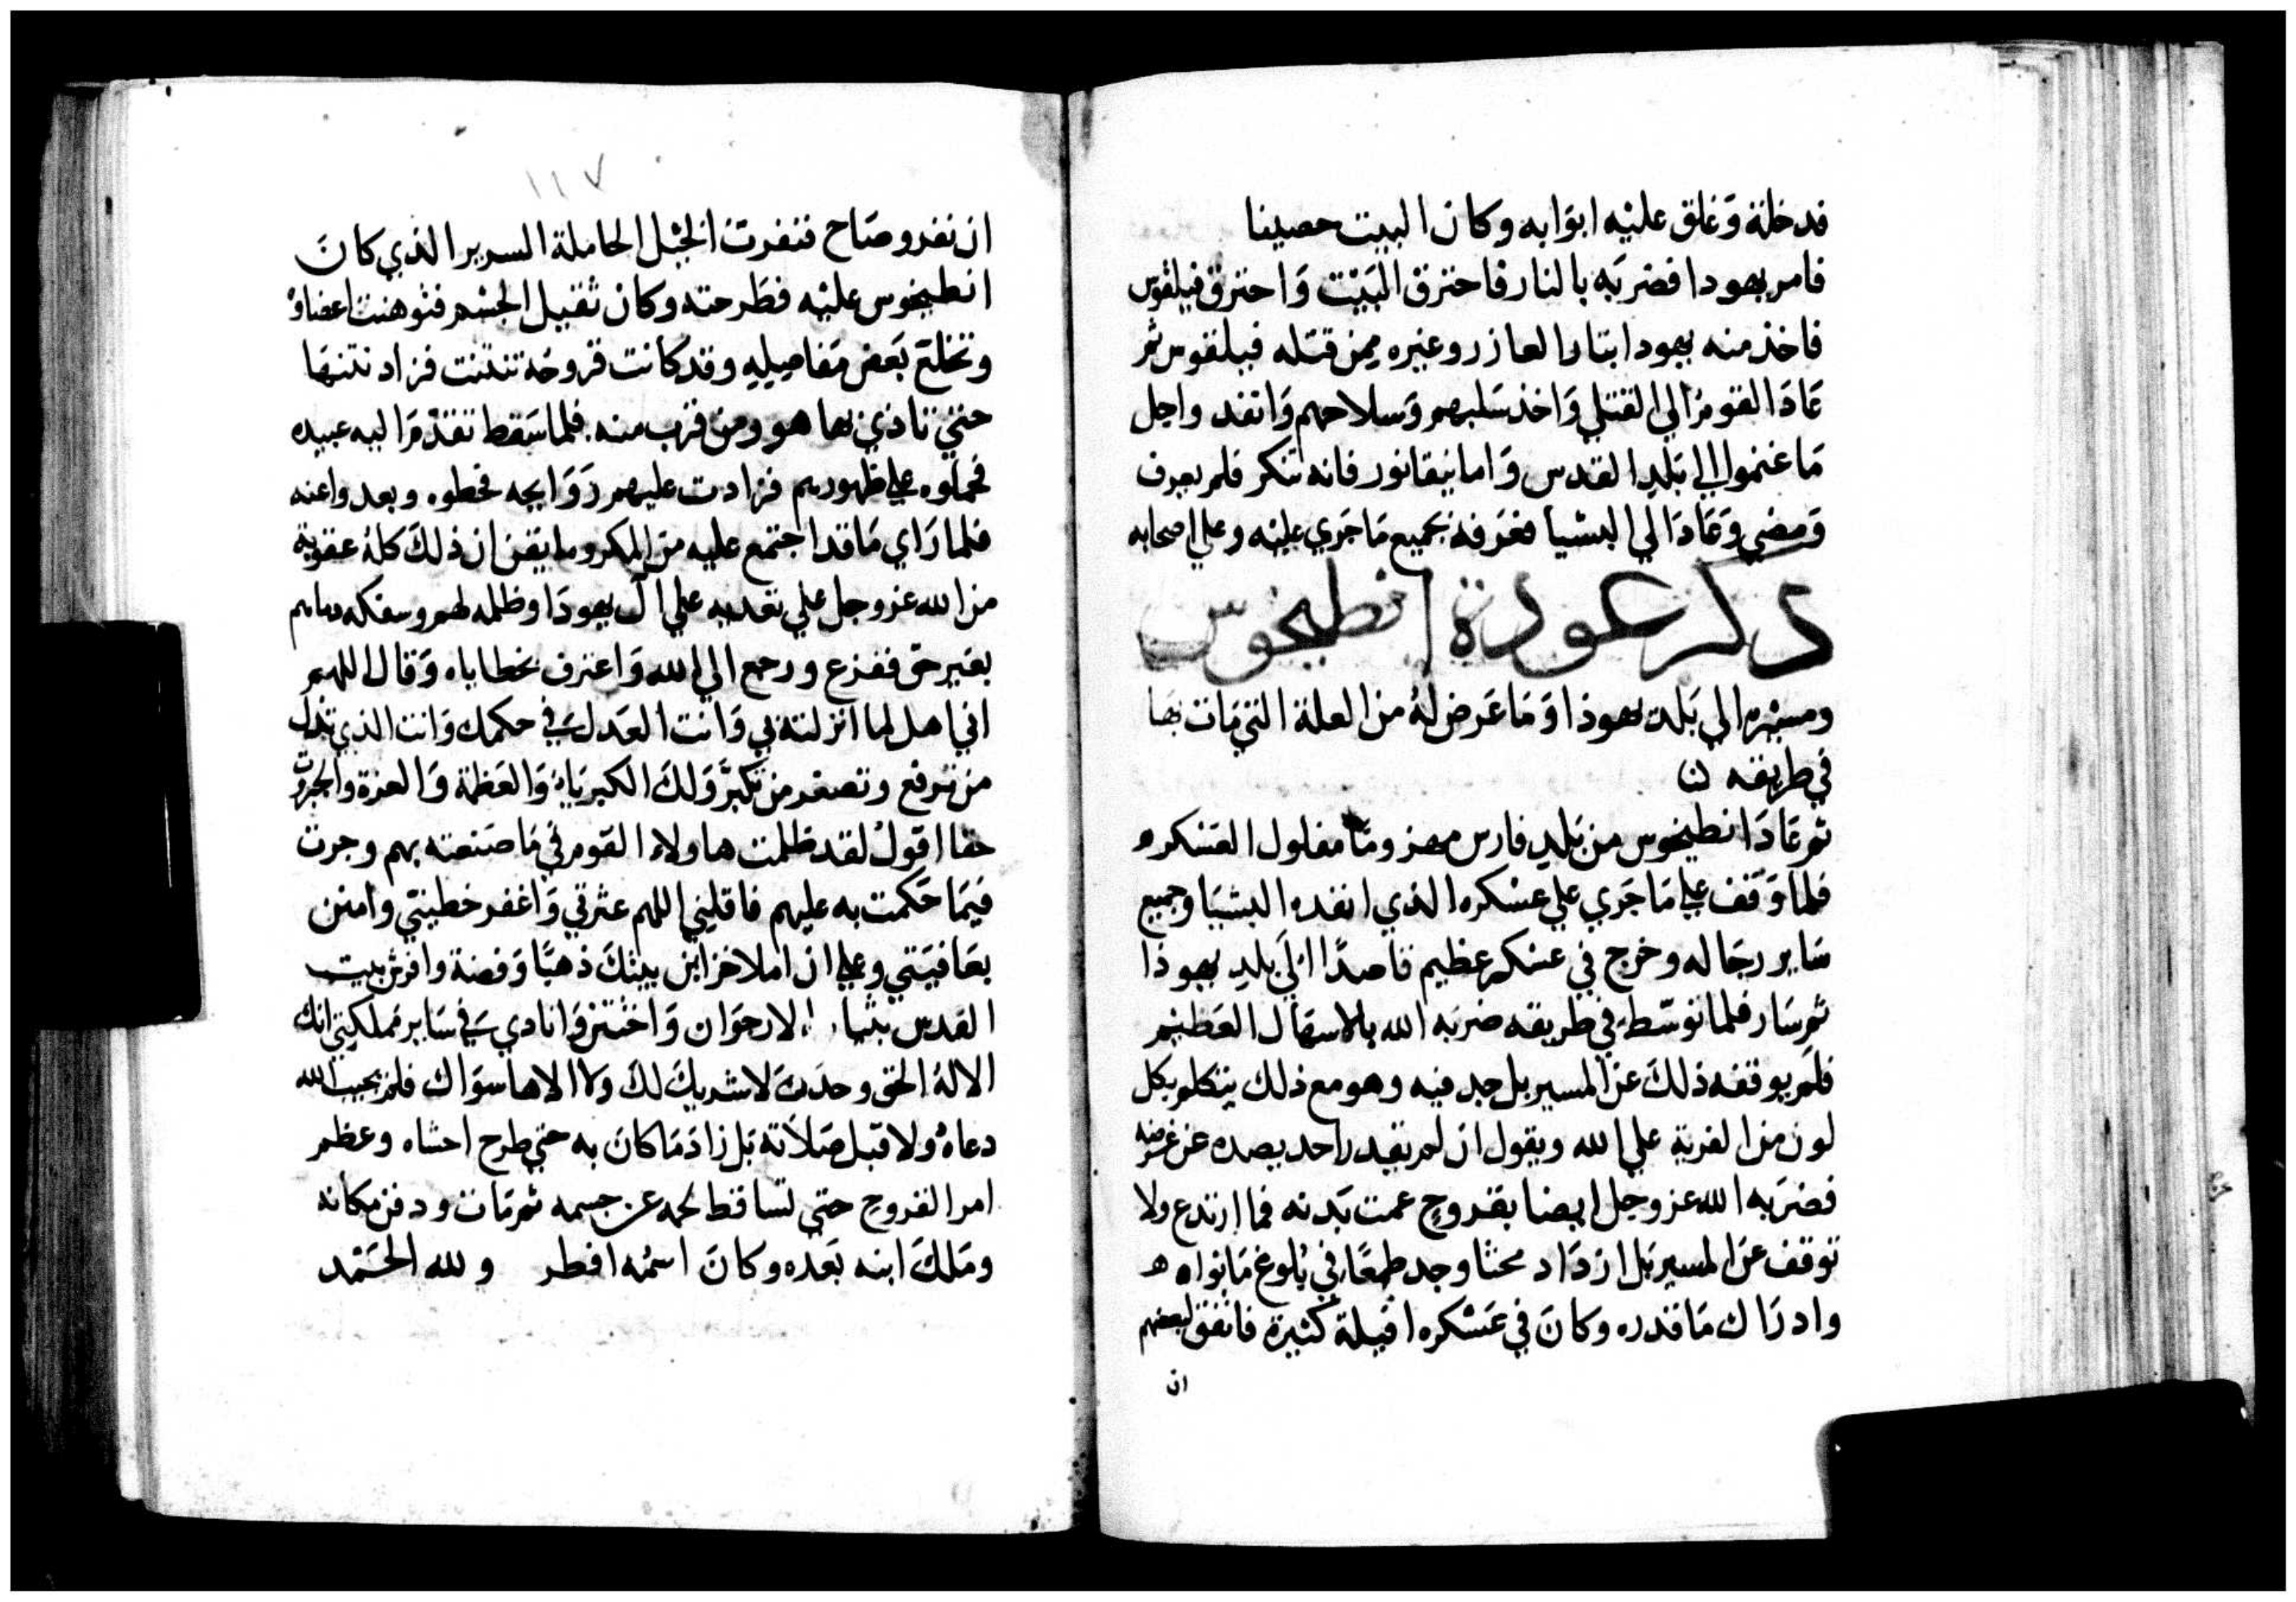 فدخلة وَغلق عليْه ابوَابه وكان البيت حصينا
فامر يهودا فضربَه بالنار فاحترق البَيْت وَاحترق فيلقوس
فاخذ منه يهودا بثار العازر وغيره ممن قتله فيلقوس ثم
عَادَ القومرُ الي القتلي وَاخذ سَلبهم وَسلاحهم وَانفد واجل
مَا غنموا الي بَلد القدس وَاما نيقانور فانه تنكر فلم يعرف
وَمضي وَعَادَ الي البشيا فعَرفه بجميع مَا جَري عليْه وعلي اصحابه
ذكر عودة انطيخوس
ومسيْره الي بَلد يهوذا وَمَا عَرض لهُ من العلة التي مَات بهَا
في طريقه
ثم عَادَ انطيخوس من بَلدِ فارس مهزومًا مفلول العَسْكر
فلما وَقف علي مَا جَري علي عسْكره الذي انفده البشيَا وجميع
سَاير رجَاله وخرج في عسْكر عظيم قاصدًا الَي بلدِ يهوذا
ثم سَار فلما توسّط في طريقه ضربَه الله بالاسهَال العَظيم
فلَم يوقفه ذلكَ عن المسير بل جد فيه وهو مع ذلك يتكلم بكل
لون من الفرية علي الله ويقول ان لم يقدر احد يصده عن غرضه
فضرَبه الله عز وجل ايضا بقروحٍ عمت بَدنه فما ارتدع ولا
توقف عَن المسير بَل ازدَاد محثا وجد طمعًا في بُلوغ مَا نواه
وادرَاك مَا قدره وكانَ في عَسْكره افيلة كثيرة فاتفق لبعضهم
ان
١١٧
ان نفر وصَاح فنفرت الخيْل الحاملة السرير الذي كانَ
انطيخوس عليْه فطَرحته وكان ثقيل الجسْم فتوهنت اعضاوْ
وتخلعَ بَعض مَفاصيلهِ وقد كانت قروحُه تنتنت فزاد نتنهَا
حتي تاذي بها هو ومن قرب منه. فلما سَقط تقدمَ اليه عبيده
فحملوه علي ظهورهم فزادت عليهم رَوَايحه فحطوه وبعدوا عنه
فلما رَاي مَا قد اجتمع عليه من المكروه ايقن ان ذلكَ كلهُ عقوبة
من الله عز وجل علي تعديه علي ال يهودَا وظلمه لهم وسفكه دماهم
بغير حق ففزع ورجع الي الله وَاعترف بخطاياه وَقال اللهم
اني اهل لما انزلته بي وَانت العَدل في حكمك وَانت الذي تذل
من ترفع وتصغر من تكبّر وَلكَ الكبريَاءُ وَالعَظمة وَالعزة والجبروت
حقا اقولُ لقد ظلمت هاولاء القوم في مَا صَنعته بهم وجرت
فيمَا حَكمت به عليهم فاقليني اللهم عثرتي وَاغفر خطيتي وامنن
بعَافيَتي وعلي ان املا خزاين بيتكَ ذهبًا وَفضة وافرش بيت
القدس بثياب الارجوَان وَاختتن وَانادي في سَاير مَملكتي انك
الالهُ الحق وحدكَ لا شريكَ لكَ وَلا الاها سوَاك فلم يجب الله
دعاهُ ولا قبل صَلاته بَل زادَ مَا كانَ به حتي طرح احشاه وعظم
امر القروح حتي تساقط لحمه عن جسمه ثم مَات ودفن مكانه
ومَلكَ ابنه بَعْده وكانَ اسمُه افطر ولله الحَمْد